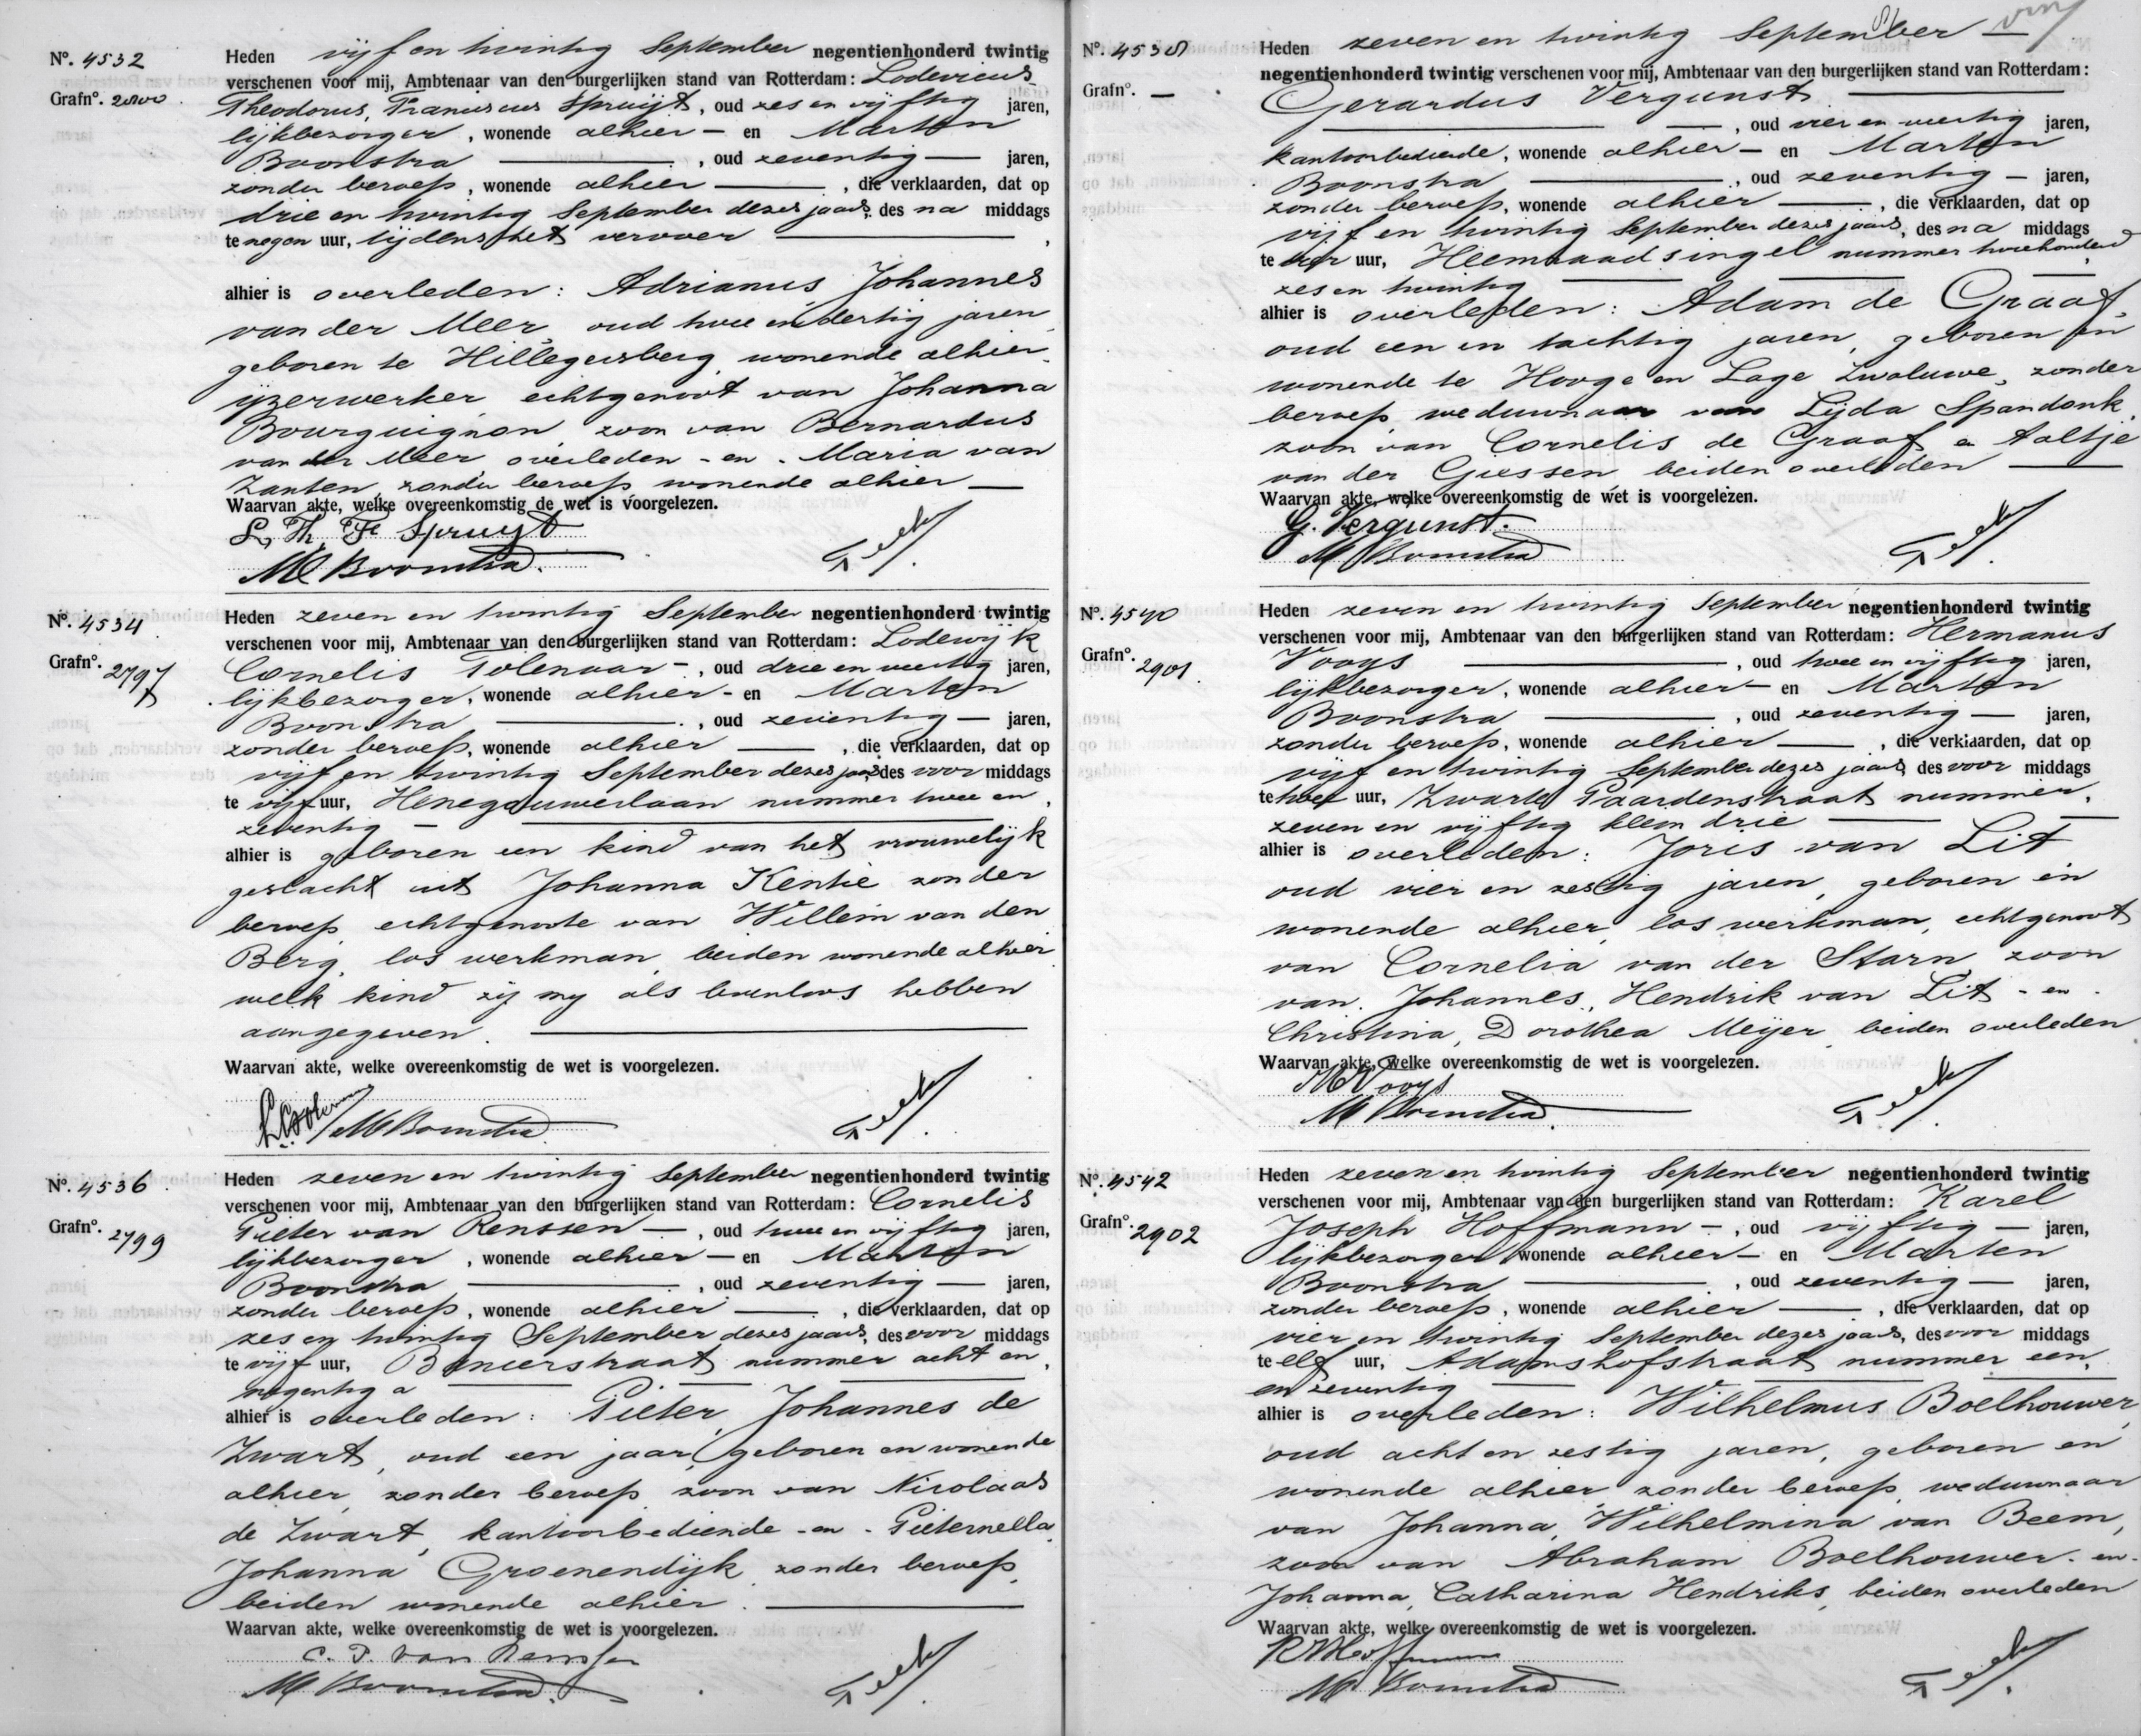 Nº. 4532
Grafnº. 2800
Heden vijf en twintig September negentienhonderd twintig
verschenen voor mij, Ambtenaar van den burgerlijken stand van Rotterdam: Lodevicus
Theodorus, Franciscus Spruijt, oud zes en vijftig jaren,
lijkbezorger, wonende alhier – en Marten
Boonstra, oud zeventig – jaren,
zonder beroep, wonende alhier, die verklaarden, dat op
drie en twintig September dezes jaars, des na middags
te negen uur, tijdens het vervoer
alhier is overleden: Adrianus, Johannes
van der Meer, oud twee en dertig jaren,
geboren te Hillegersberg, wonende alhier,
ijzerwerker, echtgenoot van Johanna
Bourguignon, zoon van Bernardus
van der Meer, overleden - en - Maria van
Zanten, zonder beroep wonende alhier
Waarvan akte, welke overeenkomstig de wet is voorgelezen.
L. Th. Fr Spruyt
M Boonstra.
Nº. 4534
Grafnº. 2797
Heden zeven en twintig September negentienhonderd twintig
verschenen voor mij, Ambtenaar van den burgerlijken stand van Rotterdam: Lodewijk
Cornelis Tolenaar –, oud drie en veertig jaren,
lijkbezorger, wonende alhier - en Marten
Boonstra, oud zeventig – jaren,
zonder beroep, wonende alhier, die verklaarden, dat op
vijf en twintig September dezes jaars des voor middags
te vijf uur, Henegouwerlaan nummer twee en
zeventig
alhier is geboren een kind van het vrouwelijk
geslacht uit Johanna Kentie zonder
beroep, echtgenoote van Willem van den
Berg, los werkman, beiden wonende alhier
welk kind zij mij als levenloos hebben
aangegeven.
Waarvan akte, welke overeenkomstig de wet is voorgelezen.
M Boonstra
Nº. 4536
Grafnº. 2799
Heden zeven en twintig September negentienhonderd twintig
verschenen voor mij, Ambtenaar van den burgerlijken stand van Rotterdam: Cornelis
Pieter van Renssen –, oud twee en vijftig jaren,
lijkbezorger, wonende alhier – en Marten
Boonstra, oud zeventig – jaren,
zonder beroep, wonende alhier, die verklaarden, dat op
zes en twintig September dezes jaars, des voor middags
te vijf uur, Banierstraat nummer acht en
negentig a
alhier is overleden: Pieter, Johannes de
Zwart, oud een jaar, geboren en wonende
alhier, zonder beroep, zoon van Nicolaas
de Zwart, kantoorbediende - en - Pieternella
Johanna Groenendijk, zonder beroep,
beiden wonende alhier.
Waarvan akte, welke overeenkomstig de wet is voorgelezen.
C. P. van Renssen
M Boonstra.
Nº. 4538
Grafnº. –
Heden zeven en twintig September
negentienhonderd twintig verschenen voor mij, Ambtenaar van den burgerlijken stand van Rotterdam:
Gerardus Vergunst
, oud vier en veertig jaren,
kantoorbediende, wonende alhier – en Marten
Boonstra, oud zeventig – jaren,
zonder beroep, wonende alhier, die verklaarden, dat op
vijf en twintig September dezes jaars, des na middags
te vier uur, Heemraadsingel nummer tweehonderd
zes en twintig
alhier is overleden: Adam de Graaf,
oud een en tachtig jaren, geboren en
wonende te Hooge en Lage Zwaluwe, zonder
beroep, weduwnaar van Lijda Spandonk,
zoon van Cornelis de Graaf en Aaltje
van der Giessen, beiden overleden
Waarvan akte, welke overeenkomstig de wet is voorgelezen.
G. Vergunst.
M Boonstra
Nº. 4540
Grafnº. 2901.
Heden zeven en twintig September negentienhonderd twintig
verschenen voor mij, Ambtenaar van den burgerlijken stand van Rotterdam: Hermanus
Vooys, oud twee en vijftig jaren,
lijkbezorger, wonende alhier – en Marten
Boonstra, oud zeventig – jaren,
zonder beroep, wonende alhier, die verklaarden, dat op
vijf en twintig September dezes jaars, des voor middags
te twee uur, Zwarte Paardenstraat nummer
zeven en vijftig klein drie
alhier is overleden: Joris van Lit
oud vier en zestig jaren, geboren en
wonende alhier, los werkman, echtgenoot
van Cornelia van der Starn zoon
van Johannes, Hendrik van Lit - en -
Christina, Dorothea Meijer, beiden overleden
Waarvan akte, welke overeenkomstig de wet is voorgelezen.
H Vooys
M Boonstra.
Nº. 4542
Grafnº. 2902
Heden zeven en twintig September negentienhonderd twintig
verschenen voor mij, Ambtenaar van den burgerlijken stand van Rotterdam: Karel
Joseph Hoffmann –, oud vijftig – jaren,
lijkbezorger wonende alhier – en Marten
Boonstra, oud zeventig – jaren,
zonder beroep, wonende alhier, die verklaarden, dat op
vier en twintig September dezes jaars, des voor middags
te elf uur, Adamshofstraat nummer een
en zeventig
alhier is overleden: Wilhelmus Boelhouwer,
oud acht en zestig jaren, geboren en
wonende alhier zonder beroep, weduwnaar
van Johanna, Wilhelmina van Beem,
zoon van Abraham Boelhouwer - en -
Johanna, Catharina Hendriks, beiden overleden
Waarvan akte, welke overeenkomstig de wet is voorgelezen.
M Boonstra